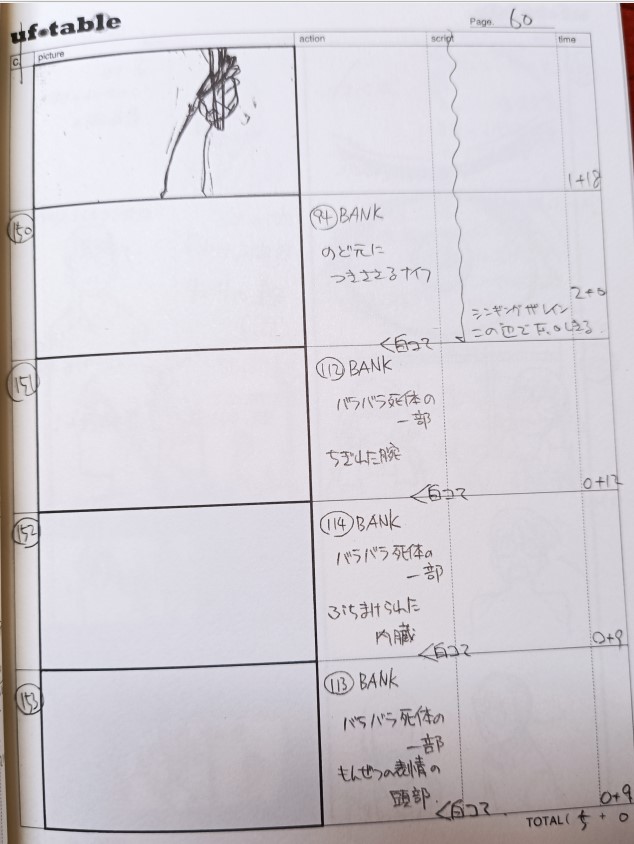 uf-table
Page. 60
c. picture action script time
1+18
150
94 BANK
のど元に
つきささるナイフ
2+0
シンギングザレイン
この辺で
<白コマ
151
112 BANK
バラバラ死体の
一部
ちぎれた腕
<白コマ
0+12
152
114 BANK
バラバラ死体の
一部
ぶちまけられた
内臓
<白コマ
0+9
153
113 BANK
バラバラ死体の
一部
もんぜつの表情の
頭部
<白コマ
0+9
TOTAL( 5 + 0